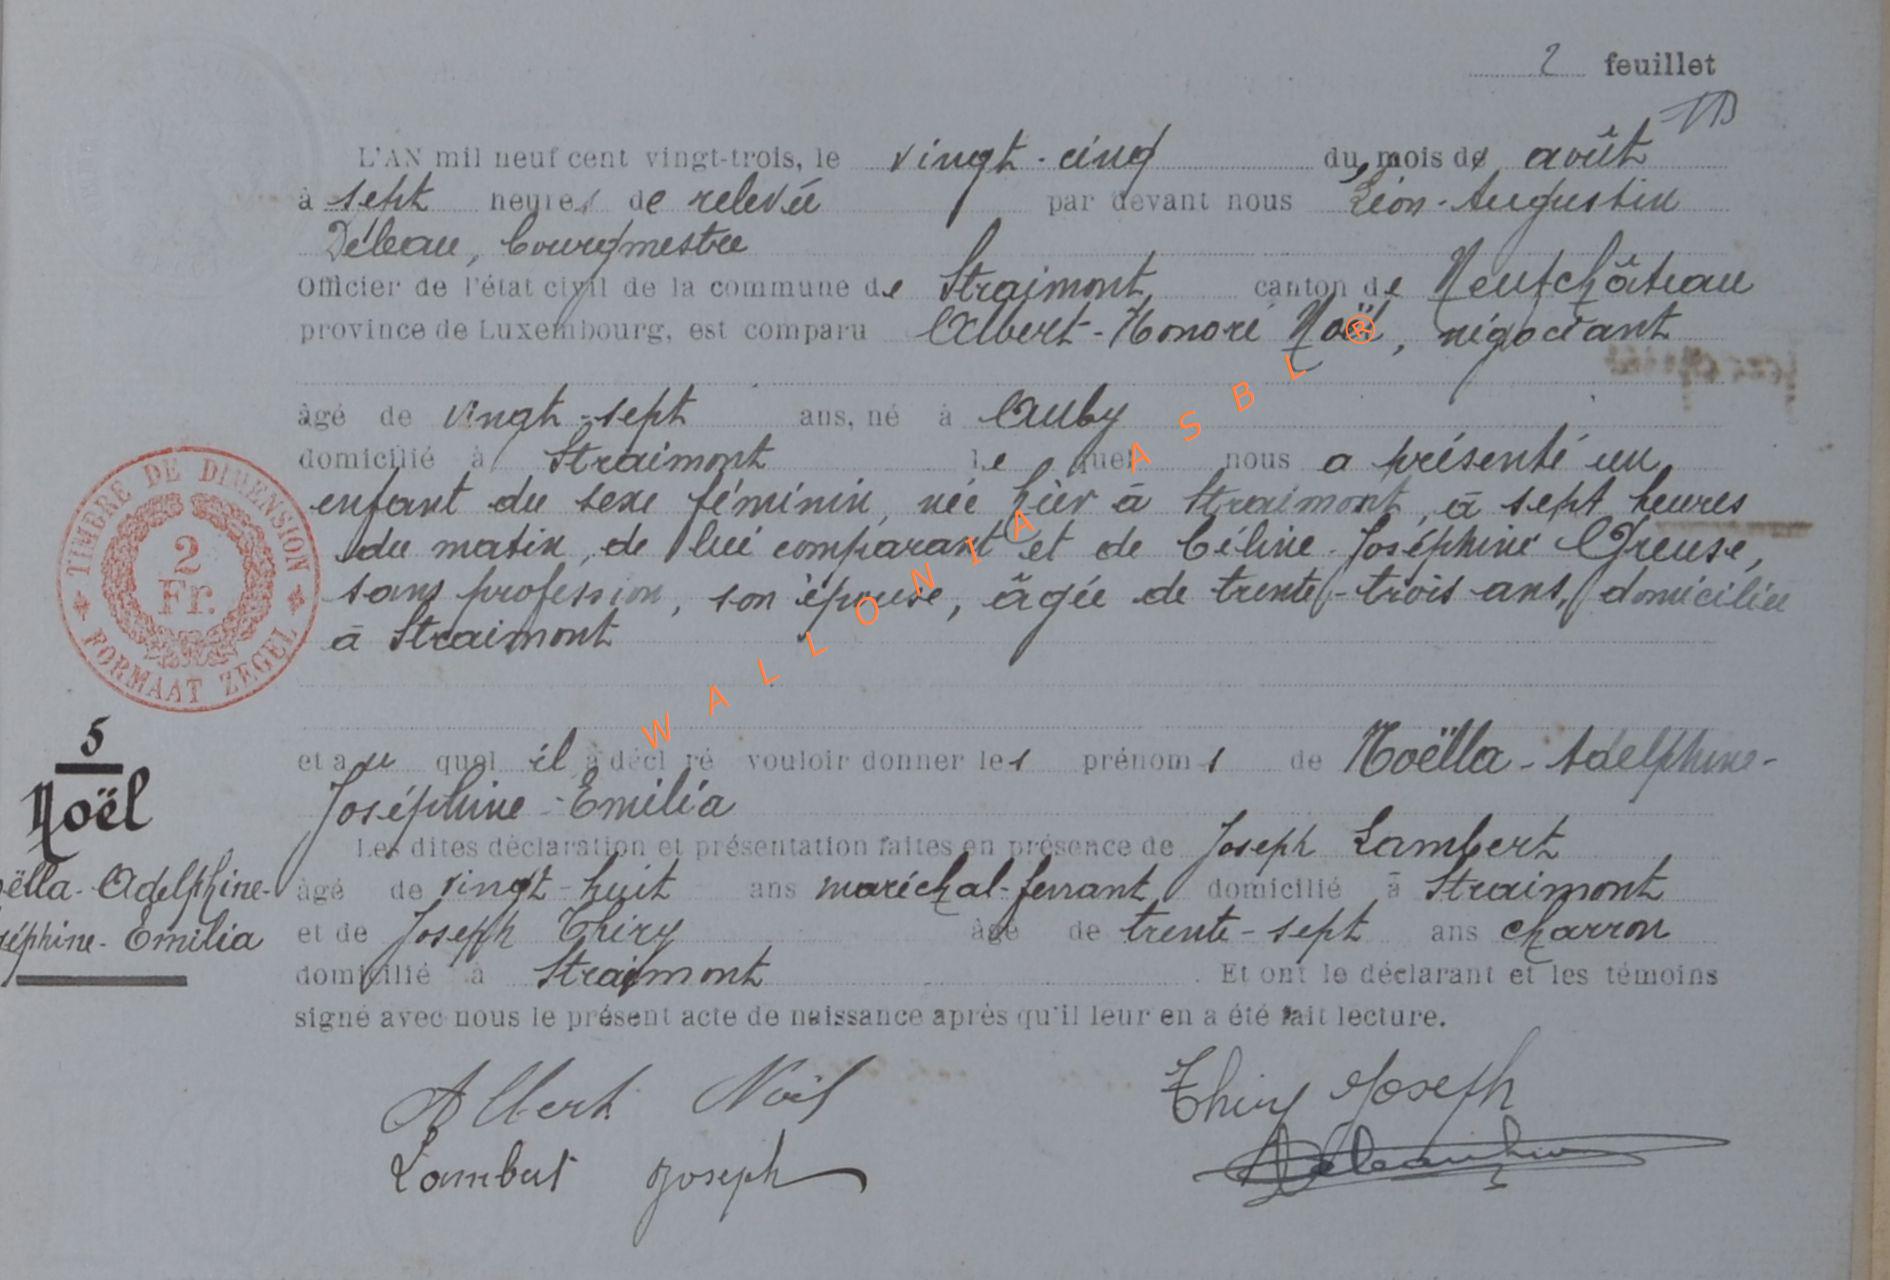 2 feuillet
L'AN mil neuf cent vingt-trois, le vingt-cinq du mois de août
à sept heures de relevée par devant nous Léon-Augustin
Déleau, bourgmestre
Officier de l'état civil de la commune de Straimont, canton de Neufchâteau
province de Luxembourg, est comparu Albert-Honoré Noël, négociant
âgé de vingt-sept ans, né à Auby
domicilié à Straimont le quel nous a présenté un
enfant du sexe féminin, née hier à Straimont, à sept heures
du matin, de lui comparant et de Céline-Joséphine Greuse,
sans profession, son épouse, âgée de trente-trois ans, domiciliée
à Straimont
et au quel il a déclaré vouloir donner les prénoms de Noëlla-Adelphine-
Joséphine-Emilia
Les dites déclaration et présentation faites en présence de Joseph Lambert
âgé de vingt-huit ans maréchal-ferrant domicilié à Straimont
et de Joseph Thiry âgé de trente-sept ans charron
domicilié à Straimont. Et ont le déclarant et les témoins
signé avec nous le présent acte de naissance après qu'il leur en a été fait lecture.
Albert Noël Thiry Joseph
Lambert Joseph
TIMBRE DE DIMENSION
2
Fr.
FORMAAT ZEGEL
5
Noël
oëlla-Adelphine-
séphine-Emilia
WALLONIA ASBL ®